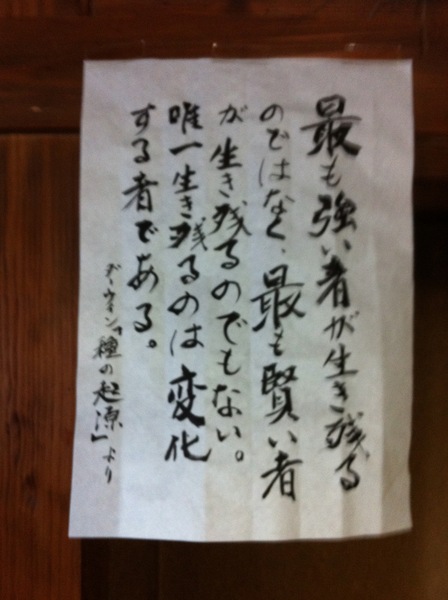 最も強い者が生き残る
のではなく、最も賢い者
が生き残るのでもない。
唯一生き残るのは変化
する者である。
ダーウィン「種の起源」より